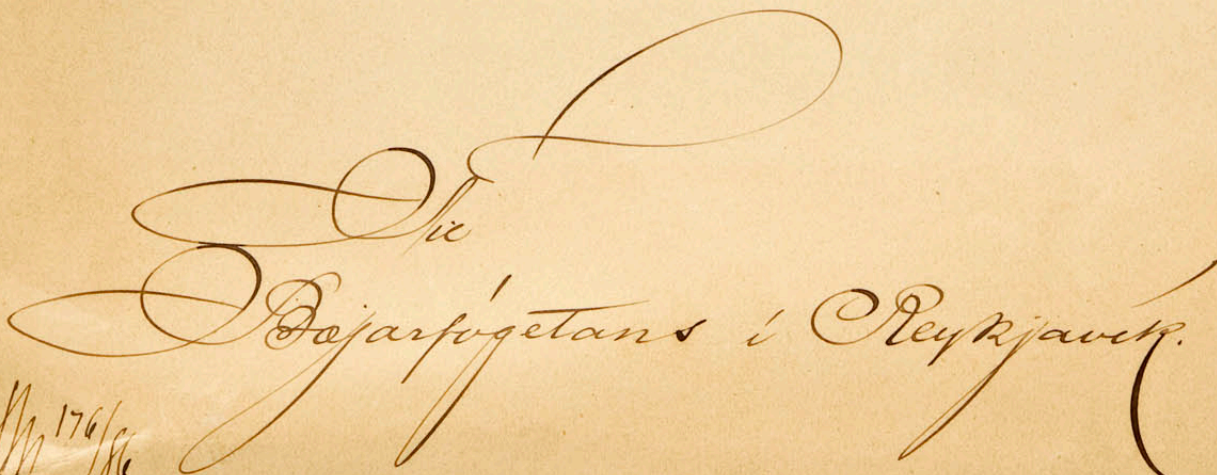 Til
Bæjarfógetans í Reykjavík.
176/86